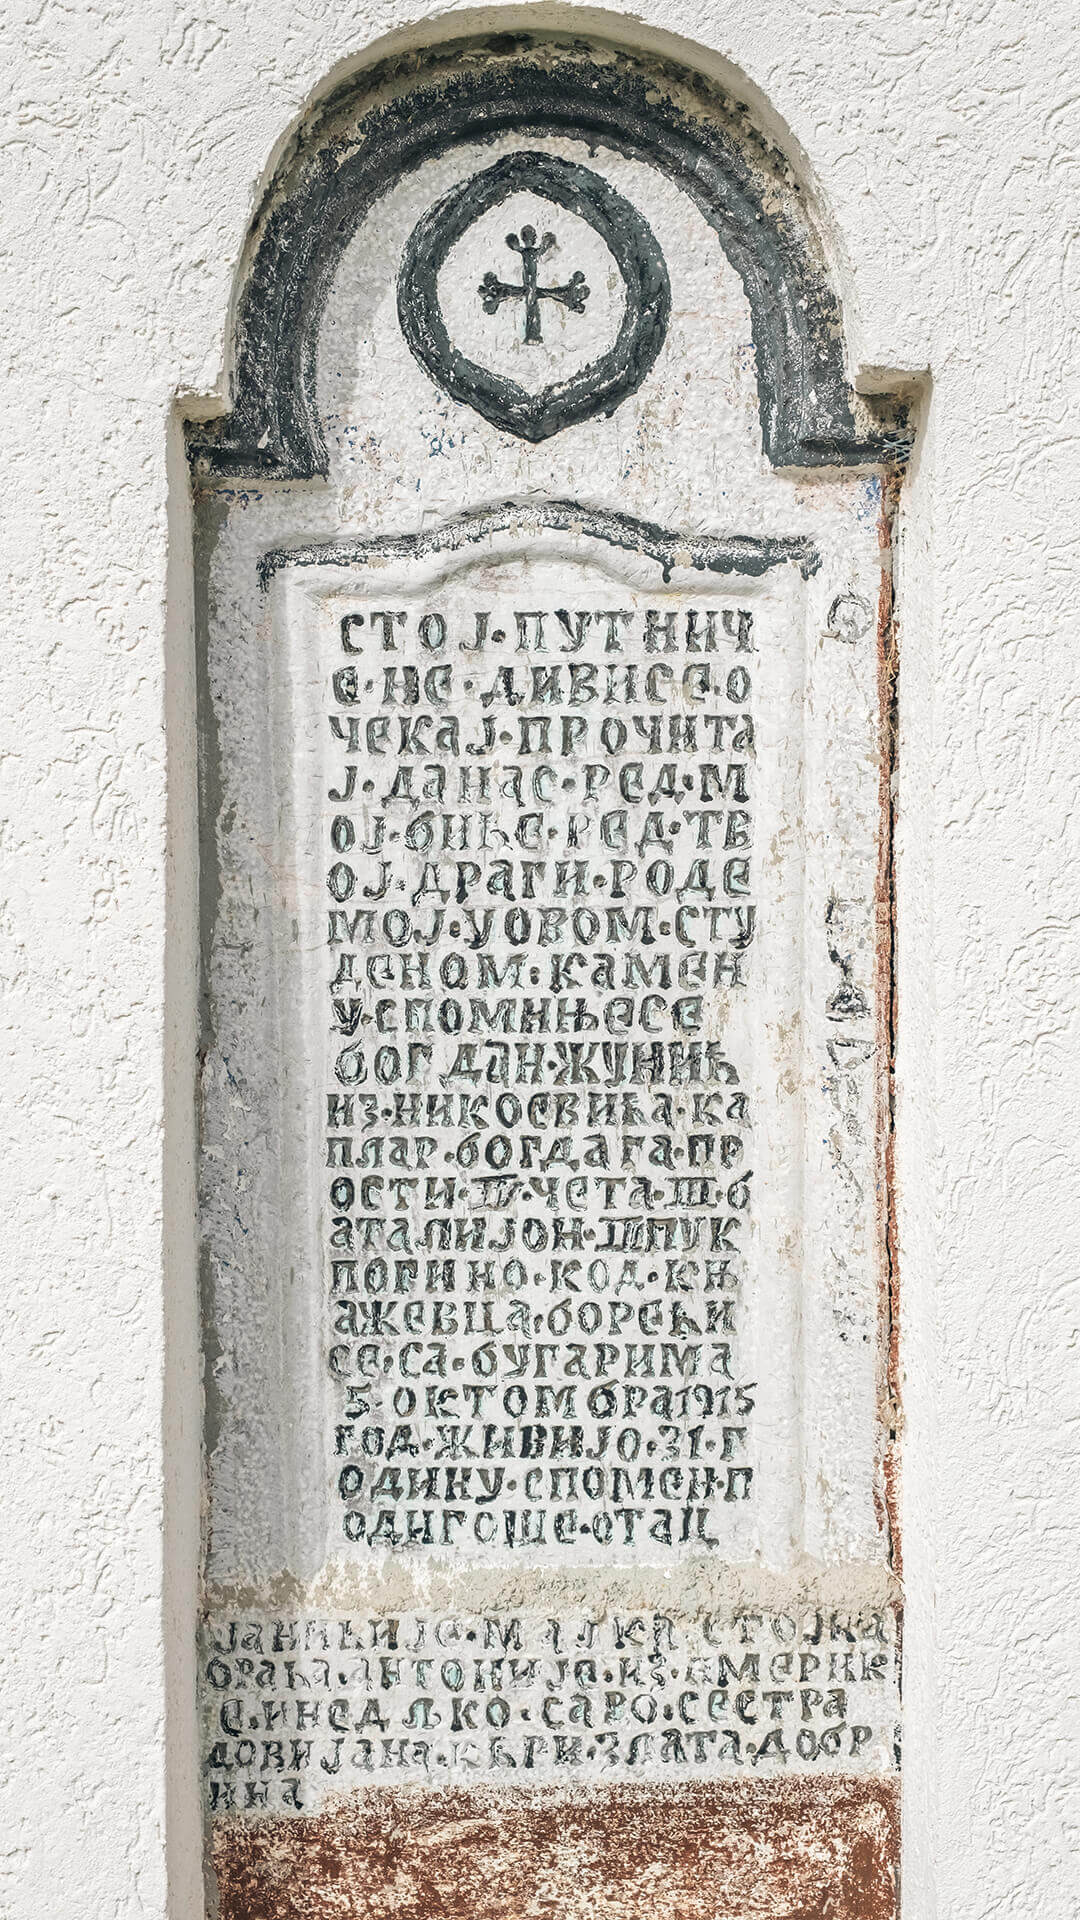 СТОЈ·ПУТНИЧ
Е·НЕ·ДИВИСЕ·О
ЧЕКАЈ·ПРОЧИТА
Ј·ДАНАС·РЕД·М
ОЈ·БИЋЕ·РЕД·ТВ
ОЈ·ДРАГИ·РОДЕ
МОЈ·УОВОМ·СТУ
ДЕНОМ·КАМЕН
У·СПОМИЊЕСЕ
БОГДАН·ЖУНИЋ
ИЗ·НИКОЕВИЋА·КА
ПЛАР·БОГДАГАПР
ОСТИ·IV·ЧЕТА·III·Б
АТАЛИЈОН·III·ПУК
ПОГИНО·КОД·КЊ
АЖЕВЦА·БОРЕЋИ
СЕ·СА·БУГАРИМА
5·ОКТОМБРА1915
ГОД·ЖИВИЈО·31·Г
ОДИНУ·СПОМЕН·П
ОДИГОШЕ·ОТАЦ
ЈАНИЋИЈЕ·МАЈКА·СТОЈКА
БРАЋА·АНТОНИЈЕ·ИЗ·АМЕРИК
Е·ИНЕДЉКО·САРО·СЕСТРА
ДОВИЈАНА·КЋРИ·ЗЛАТА·ДОБР
ИНА